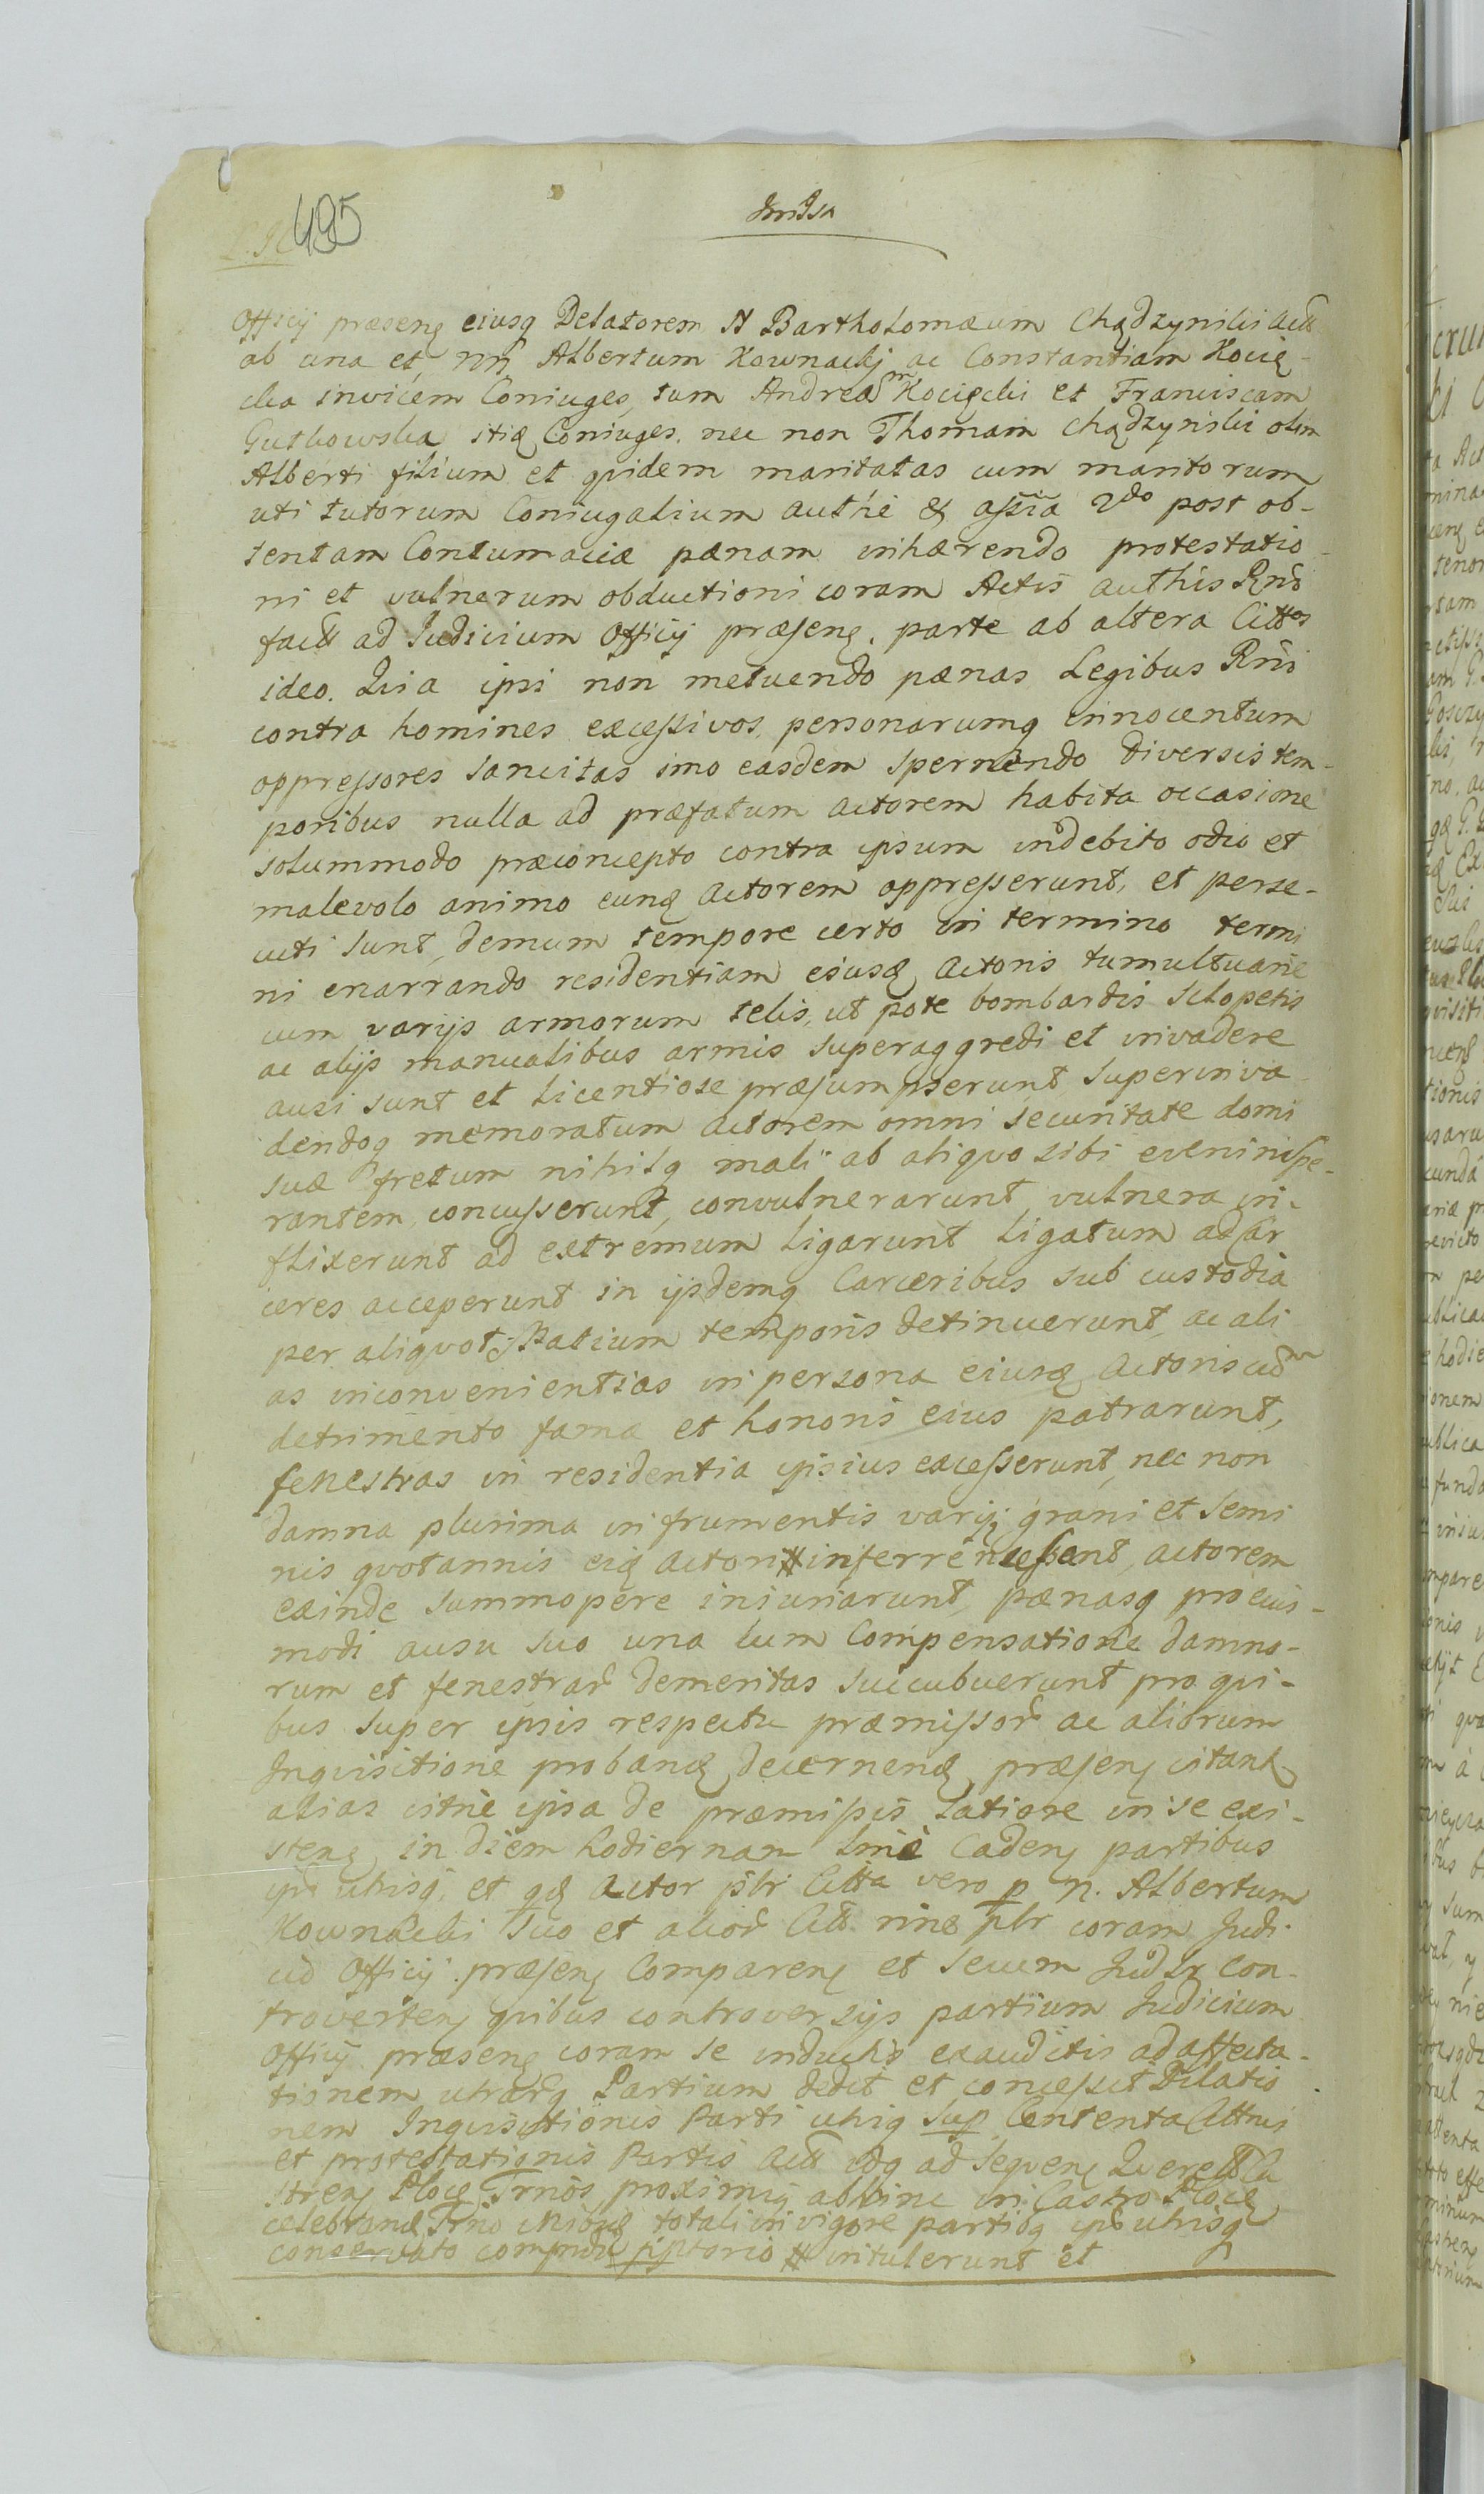 495
Officij præsenę eiusq Delatorem N Bartholomæum Chądzyński Actt
ab una et, nn Albertum Kownackj ac Constantiam Kocię-
cka invicem Coniuges, tum Andream Kocięcki et Franciscam
Gutkowska itię Coniuges. nec non Thomam Chądzyński olim
Alberti filium et quidem maritatas cum maritorum
uti tutorum Coniugalium authe & assia 2do post ob-
tentam Contumaciæ pænam inhærendo protestatio-
ni et vulnerum obductioni coram Actis authis Rni
factt ad Judicium Officij præsenę. parte ab altera Cittos
ideo. Quia ipsi non metuendo pænas Legibus Rni
contra homines excessivos, personarumq innocentum
oppressores sancitas imo easdem spernendo diversis tem-
poribus nulla ad præfatum actorem habita occasione
solummodo præconcepto contra ipsum indebito odio et
malevolo animo eunđ Actorem oppresserunt, et perse-
cuti sunt, demum tempore certo in termino termi
ni enarrando residentiam eiusđ Actoris tumultuarie
cum varijs armorum telis, ut pote bombardis sclopetis
ac alijs manualibus armis superaggredi et invadere
ausi sunt et licentiose præsumpserunt, superinva
dendoq memoratum actorem omni securitate domi
suæ fretum nihilq mali ab aliquo sibi eveniri spe-
rantem, concusserunt, convulnerarunt, vulnera in-
flixerunt ad extremum ligarunt ligatum ad Car
ceres acceperunt in ijsdemq Carceribus sub custodia
per aliquot spatium temporis detinuerunt, ac ali
as inconvenientias in persona eiusđ Actoris cum
detrimento famæ et honoris eius patrarunt,
fenestras in residentia ipsius excesserunt, nec non
damna plurima in frumentis varij grani et semi
nis quotannis eiđ actori # inferre n cessant, actorem
exinde summopere iniuriarunt, pænasq pro eius-
modi ausu suo una cum Compensatione damno-
rum et fenestrar demeritas succubuerunt pro qui-
bus super ipsis respectu præmissor ac aliorum
Inquisitione probanđ decernenđ, præsenę citant
alias citne ipsa de præmissis latiore in se exi-
stenę, in diem hodiernam Cadenę partibus
ijs utrisq, et qđ Actor pltr Citta vero p n. Albertum
Kownacki suo et alior Citt nne pltr coram Judi-
cio Officij præsenę Comparenę et secum Judltr Con-
troverten, quibus controversijs partium Judicium
Officij præsenę coram se inductis exauditis ad affecta-
tionem utrarq Partium dedit et concessit Dilatio
nem Inquisitionis Parti utriq sup Contenta Cittnis
et protestationis Partis Actt edq ad sequenę Querell Ca
strenę Plocę Trnos proximę abhinc in Castro Plocę
celebranđ, Trno totali in vigore partibq ijs utrisq
conservato # intulerunt et